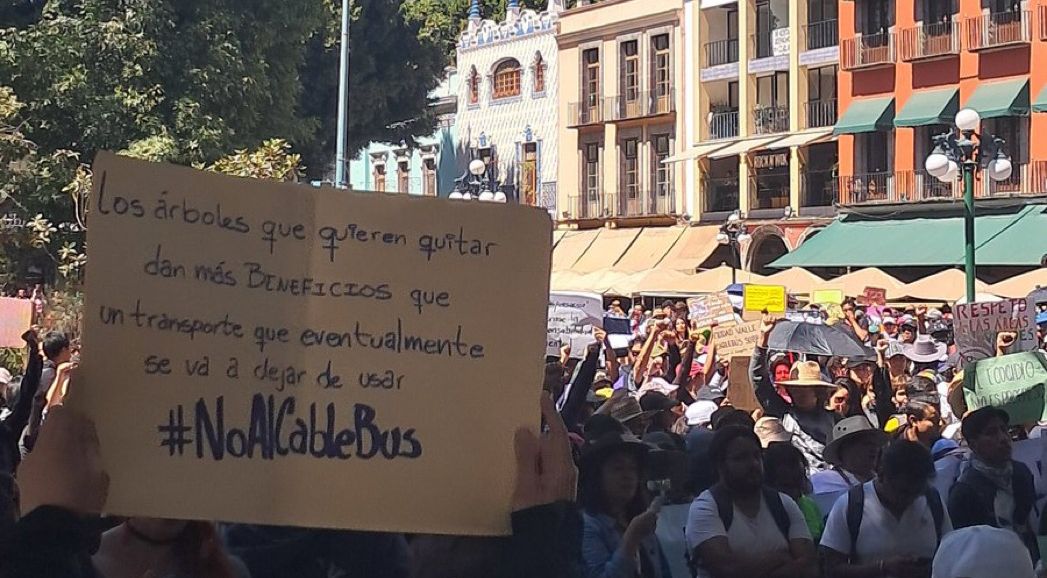 Los árboles que quieren quitar
dan más BENEFICIOS que
un transporte que eventualmente
se va a dejar de usar
#NoAlCableBus
ROCK N' WOK
RESPETO
A LAS ÁREAS
ECOCIDIO